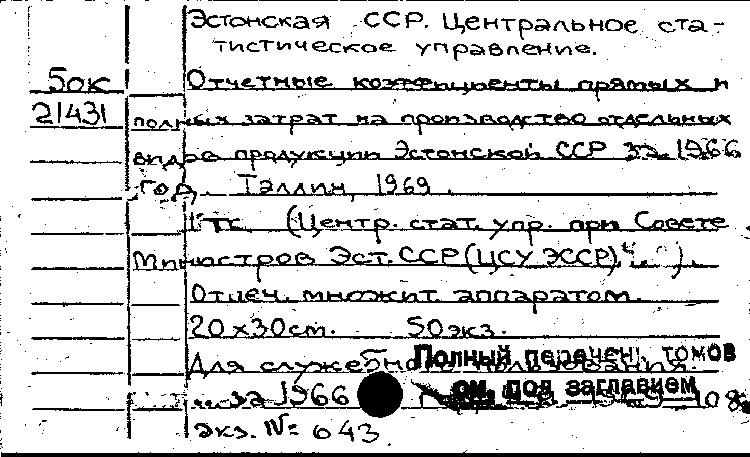 Эстонская ССР. Центральное ста-
тистическое управление.
5ок Отчетные коэффициенты прямых и
21431 полных затрат на производство отдельных
видов продукции Эстонской ССР за 1966
год. Таллин, 1969.
(Центр. стат. упр. при Совете
Министров Эст. ССР (ЦСУ ЭССР)
Отпеч. множит. аппаратом.
20х30см. 50экз.
Для служебного пользования.
Полный перечень томов
см. под заглавием
за 1966
экз. № 643